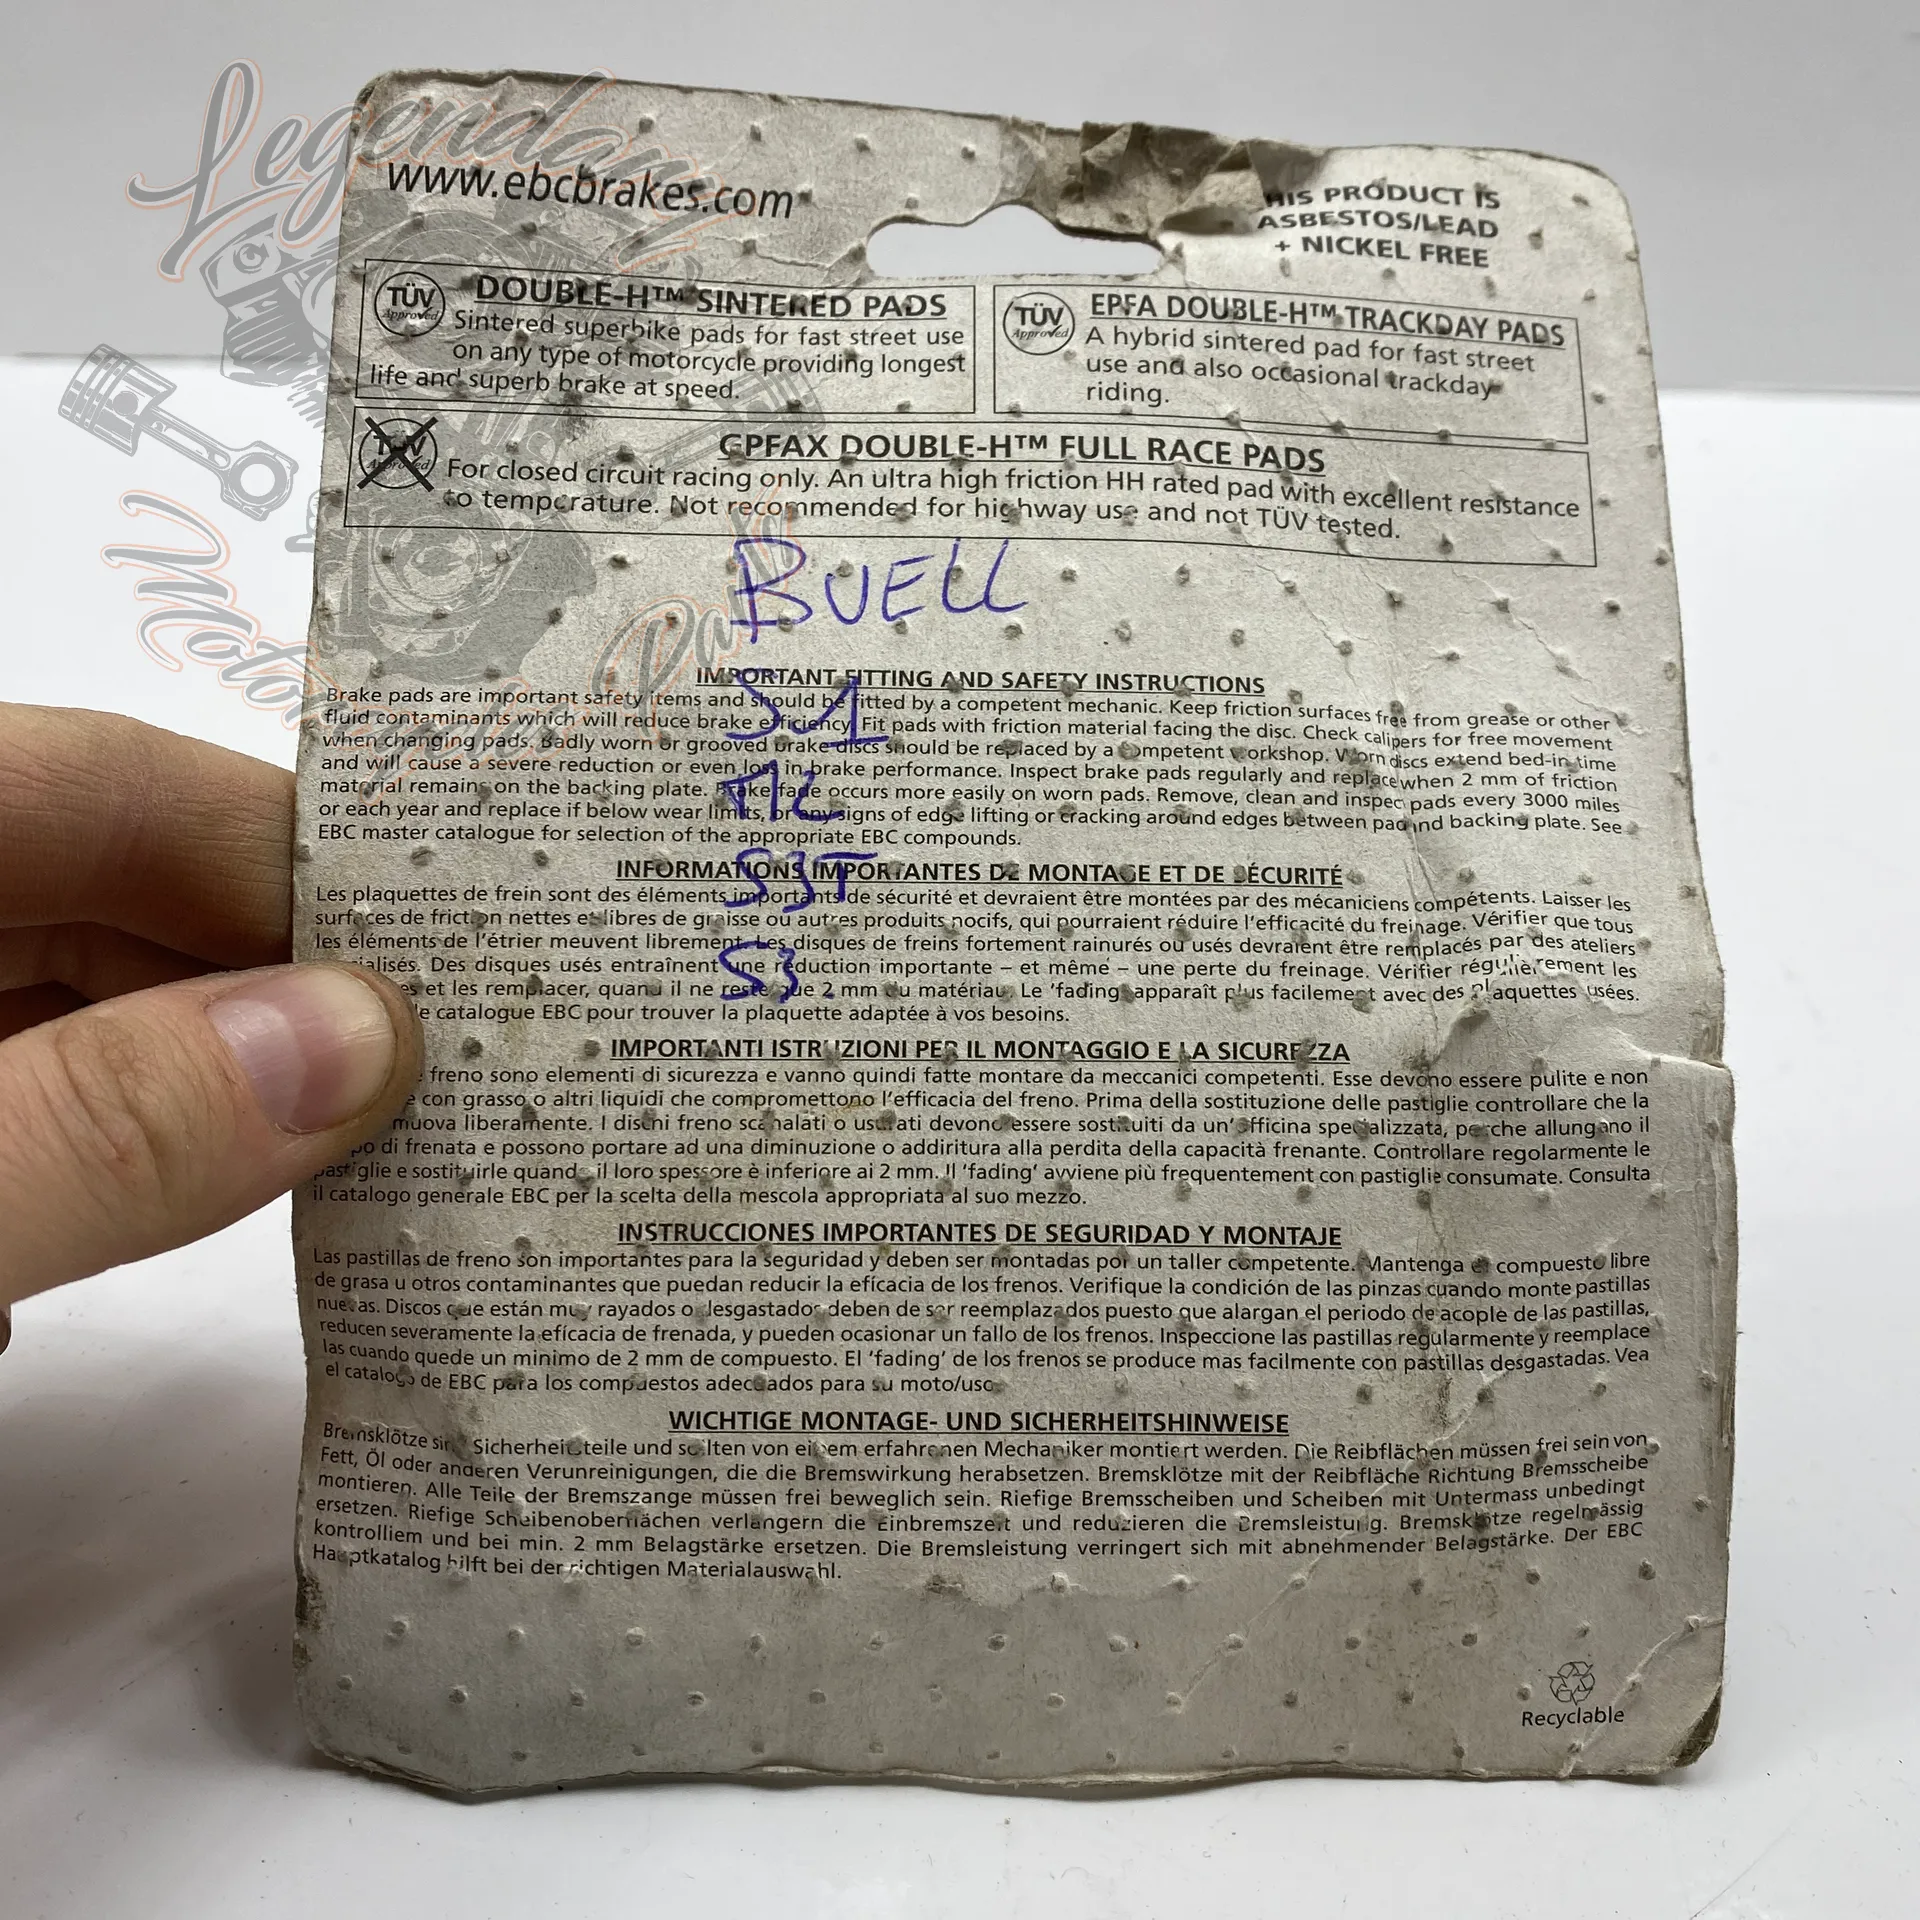 Legendary
Motorcycle Parts
www.ebcbrakes.com
HIS PRODUCT IS
ASBESTOS/LEAD
+ NICKEL FREE
TÜV
Approved
DOUBLE-H™ SINTERED PADS
Sintered superbike pads for fast street use
on any type of motorcycle providing longest
life and superb brake at speed.
TÜV
Approved
EPFA DOUBLE-H™ TRACKDAY PADS
A hybrid sintered pad for fast street
use and also occasional trackday
riding.
TÜV
Approved
GPFAX DOUBLE-H™ FULL RACE PADS
For closed circuit racing only. An ultra high friction HH rated pad with excellent resistance
to temperature. Not recommended for highway use and not TÜV tested.
BUELL
IMPORTANT FITTING AND SAFETY INSTRUCTIONS
Brake pads are important safety items and should be fitted by a competent mechanic. Keep friction surfaces free from grease or other
fluid contaminants which will reduce brake efficiency. Fit pads with friction material facing the disc. Check calipers for free movement
when changing pads. Badly worn or grooved brake discs should be replaced by a competent workshop. Worn discs extend bed-in time
and will cause a severe reduction or even loss in brake performance. Inspect brake pads regularly and replace when 2 mm of friction
material remains on the backing plate. Brake fade occurs more easily on worn pads. Remove, clean and inspect pads every 3000 miles
or each year and replace if below wear limits, or any signs of edge lifting or cracking around edges between pad and backing plate. See
EBC master catalogue for selection of the appropriate EBC compounds.
S3T
S3
INFORMATIONS IMPORTANTES DE MONTAGE ET DE SÉCURITÉ
Les plaquettes de frein sont des éléments importants de sécurité et devraient être montées par des mécaniciens compétents. Laisser les
surfaces de friction nettes et libres de graisse ou autres produits nocifs, qui pourraient réduire l'efficacité du freinage. Vérifier que tous
les éléments de l'étrier meuvent librement. Les disques de freins fortement rainurés ou usés devraient être remplacés par des ateliers
ialisés. Des disques usés entraînent une réduction importante – et même – une perte du freinage. Vérifier régulièrement les
es et les remplacer, quand il ne reste que 2 mm du matériau. Le 'fading' apparaît plus facilement avec des plaquettes usées.
le catalogue EBC pour trouver la plaquette adaptée à vos besoins.
IMPORTANTI ISTRUZIONI PER IL MONTAGGIO E LA SICUREZZA
freno sono elementi di sicurezza e vanno quindi fatte montare da meccanici competenti. Esse devono essere pulite e non
e con grasso o altri liquidi che compromettono l'efficacia del freno. Prima della sostituzione delle pastiglie controllare che la
muova liberamente. I dischi freno scanalati o usurati devono essere sostituiti da un'officina specializzata, perche allungano il
po di frenata e possono portare ad una diminuzione o addiritura alla perdita della capacità frenante. Controllare regolarmente le
pastiglie e sostituirle quando il loro spessore è inferiore ai 2 mm. Il 'fading' avviene più frequentemente con pastiglie consumate. Consulta
il catalogo generale EBC per la scelta della mescola appropriata al suo mezzo.
INSTRUCCIONES IMPORTANTES DE SEGURIDAD Y MONTAJE
Las pastillas de freno son importantes para la seguridad y deben ser montadas por un taller competente. Mantenga el compuesto libre
de grasa u otros contaminantes que puedan reducir la efícacia de los frenos. Verifique la condición de las pinzas cuando monte pastillas
nuevas. Discos que están muy rayados o desgastados deben de ser reemplazados puesto que alargan el periodo de acople de las pastillas,
reducen severamente la efícacia de frenada, y pueden ocasionar un fallo de los frenos. Inspeccione las pastillas regularmente y reemplace
las cuando quede un minimo de 2 mm de compuesto. El 'fading' de los frenos se produce mas facilmente con pastillas desgastadas. Vea
el catalogo de EBC para los compuestos adecuados para su moto/uso
WICHTIGE MONTAGE- UND SICHERHEITSHINWEISE
Bremsklötze sind Sicherheitsteile und sollten von einem erfahrenen Mechaniker montiert werden. Die Reibflächen müssen frei sein von
Fett, Öl oder anderen Verunreinigungen, die die Bremswirkung herabsetzen. Bremsklötze mit der Reibfläche Richtung Bremsscheibe
montieren. Alle Teile der Bremszange müssen frei beweglich sein. Riefige Bremsscheiben und Scheiben mit Untermass unbedingt
ersetzen. Riefige Scheibenoberflächen verlängern die Einbremszeit und reduzieren die Bremsleistung. Bremsklötze regelmässig
kontrolliem und bei min. 2 mm Belagstärke ersetzen. Die Bremsleistung verringert sich mit abnehmender Belagstärke. Der EBC
Hauptkatalog hilft bei der richtigen Materialauswahl.
Recyclable